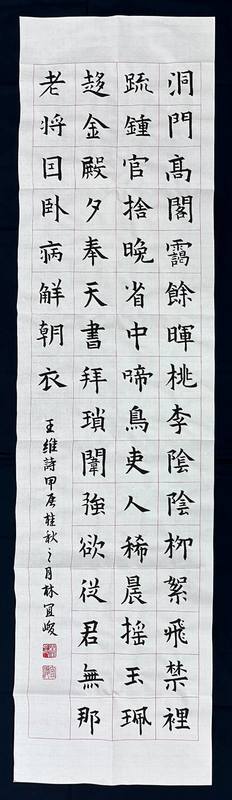 洞門髙閣靄餘暉桃李陰陰柳絮飛禁裡
疏鍾官捨晚省中啼鳥吏人稀晨揺玉珮
趍金殿夕奉天書拜瑣闈強欲従君無那
老将囙卧病觧朝衣
王維詩甲辰桂秋之月林宜峻